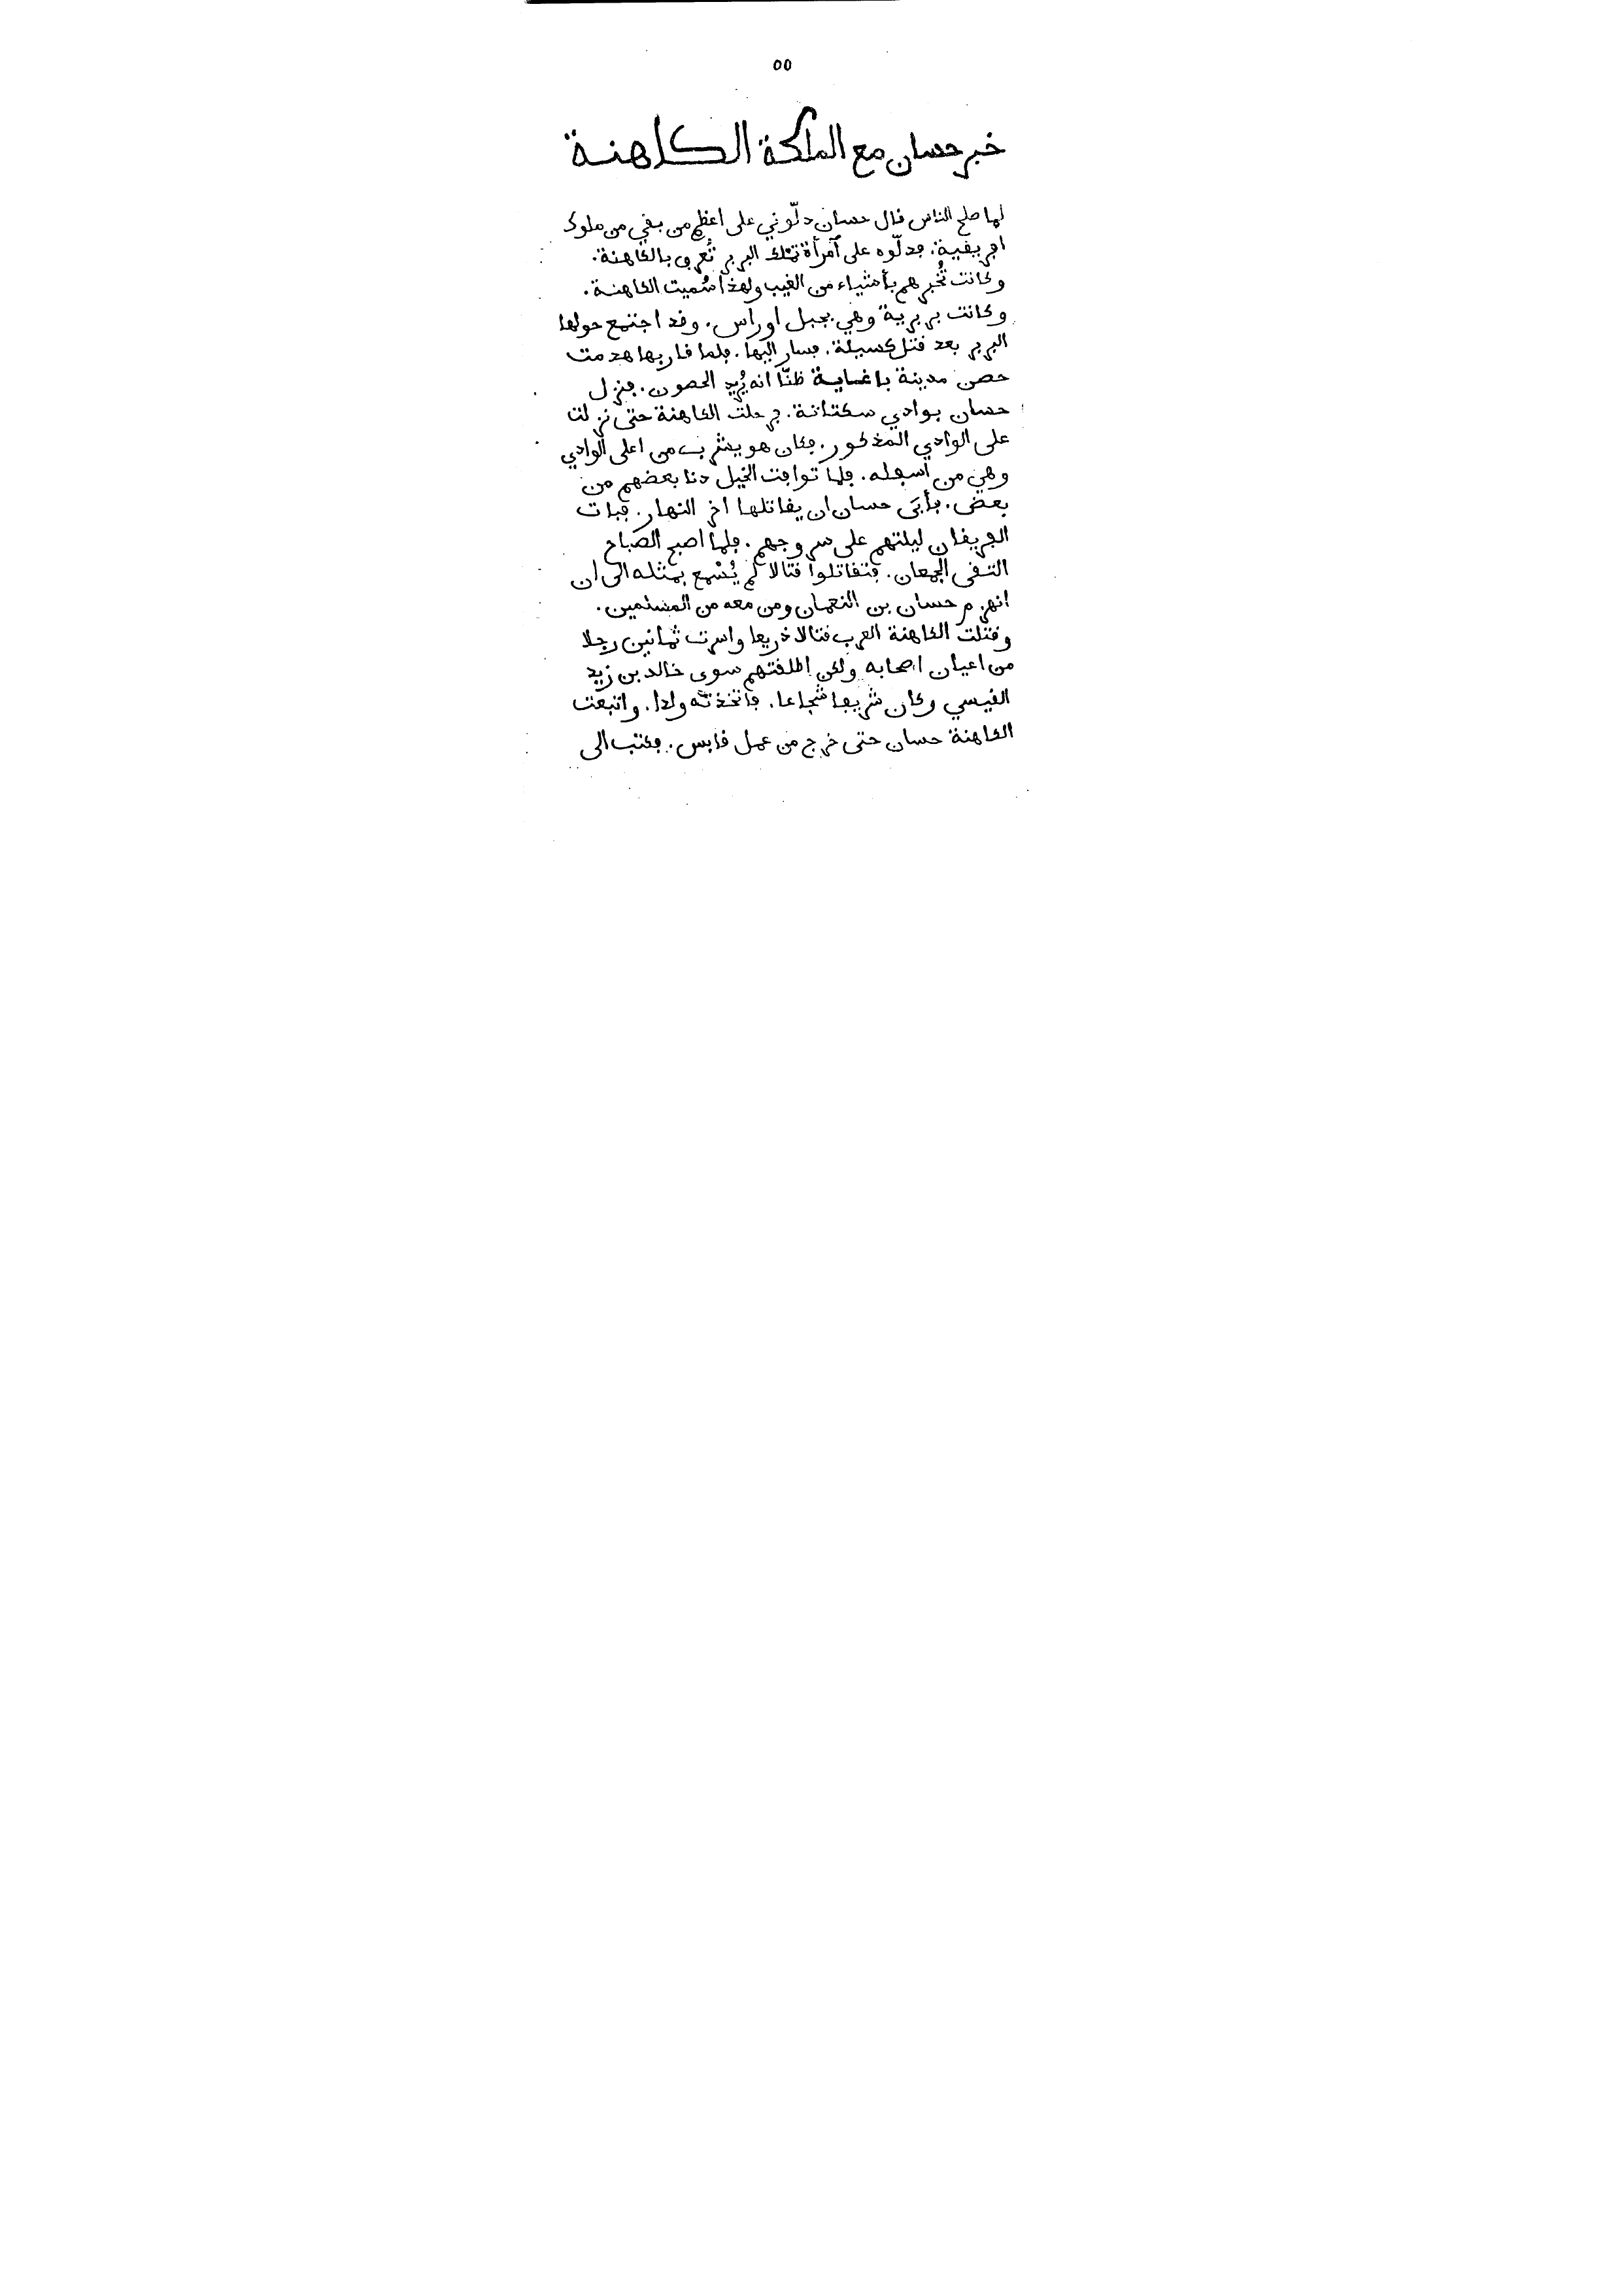 ٥٥
خبر حسان مع الملكة الكاهنة
لما صلح الناس ڧال حسان دلّوني على اعظم من بڧي من ملوك
اڢريڧية. ڢدلّوه على آمرأة تملك البربر تُعرڢ بالكاهنة.
وكانت تُخبرهم بأشياء من الغيب ولهذا سُميت الكاهنة.
وكانت بربرية وهي بجبل اوراس. وڧد اجتمع حولها
البربر بعد ڧتل كسيلة. ڢسار اليها. ڢلما ڧاربها هدمت
حصن مدينة باغساية ظنّا انه يُريد الحصون. ڢنزل
حسان بوادي سكتانة. ڢرحلت الكاهنة حتى نزلت
على الوادي المذكور. ڢكان هو يشرب من اعلى الوادي
وهي من اسڢله. ڢلما تواڢت الخيل دنا بعضهم من
بعض. ڢأبَى حسان ان يڧاتلها اخر النهار. ڢبات
الڢريڧان ليلتهم على سروجهم. ڢلما اصبح الصباح
التڧى الجمعان. ڢتڧاتلوا ڧتالا لم يُسْمع بمثله الى ان
انهزم حسان بن النعمان ومن معه من المسلمين.
وڧتلت الكاهنة العرب ڧتالا ذريعا واسرت ثمانين رجلا
من اعيان اصحابه ولكن اطلڧتهم سوى خالد بن زيد
الڧيسي وكان شريڢا شجاعا. ڢاتخذته ولدا. واتبعت
الكاهنة حسان حتى خرج من عمل ڧابس. ڢكتب الى